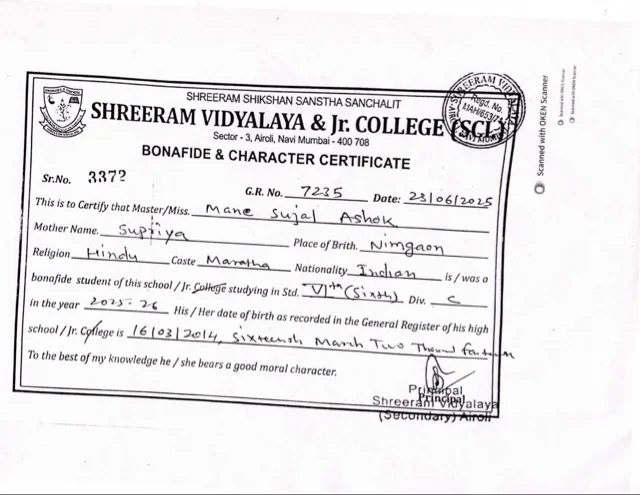 SHREERAM SHIKSHAN SANSTHA SANCHALIT
SHREERAM VIDYALAYA & Jr. COLLEGE (SCI.)
Sector - 3, Airoli, Navi Mumbai - 400 708
BONAFIDE & CHARACTER CERTIFICATE
Sr.No. 3372
G.R. No. 7235 Date: 23/06/2025
This is to Certify that Master/Miss. Mane Sujal Ashok
Mother Name. Supriya Place of Birth. Nimgaon
Religion Hindu Caste Maratha Nationality Indian is / was a
bonafide student of this school / Jr. College studying in Std. VIth (Sixth) Div. C
in the year 2025-26 His / Her date of birth as recorded in the General Register of his high
school / Jr. College is 16/03/2014, Sixteenth March Two Thound
To the best of my knowledge he / she bears a good moral character.
Principal
Principal
Shreeram Vidyalaya
(Secondary) Airoli
Regd. No.
NAVI MUMBAI
Scanned with OKEN Scanner
Scanned with OKEN Scanner
Scanned with OKEN Scanner